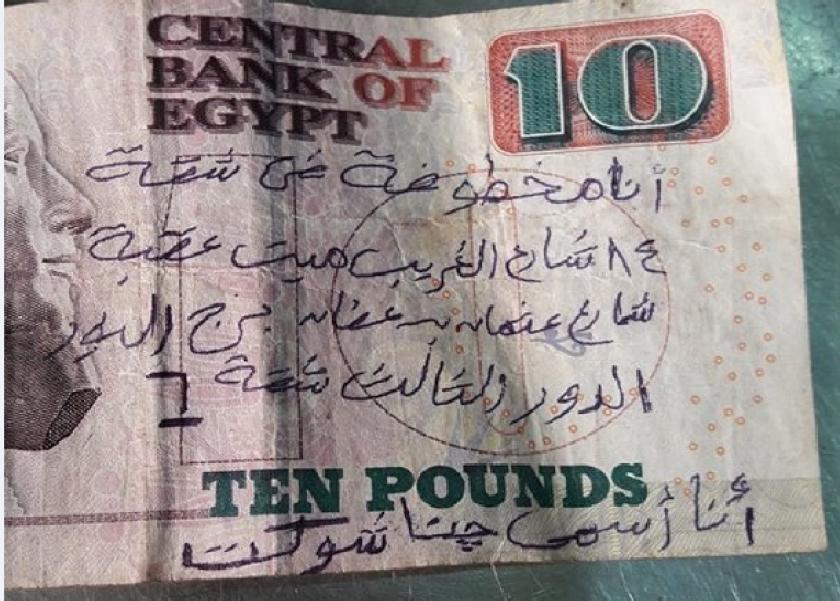 CENTRAL
BANK OF
EGYPT
10
أنا مخطوفة في شقة
٤٨ شارع الغريب ميت عقبة
شارع عثمان بن عفان برج البدور
الدور الثالث شقة ٦
TEN POUNDS
أنا أسمى چنا شوكت